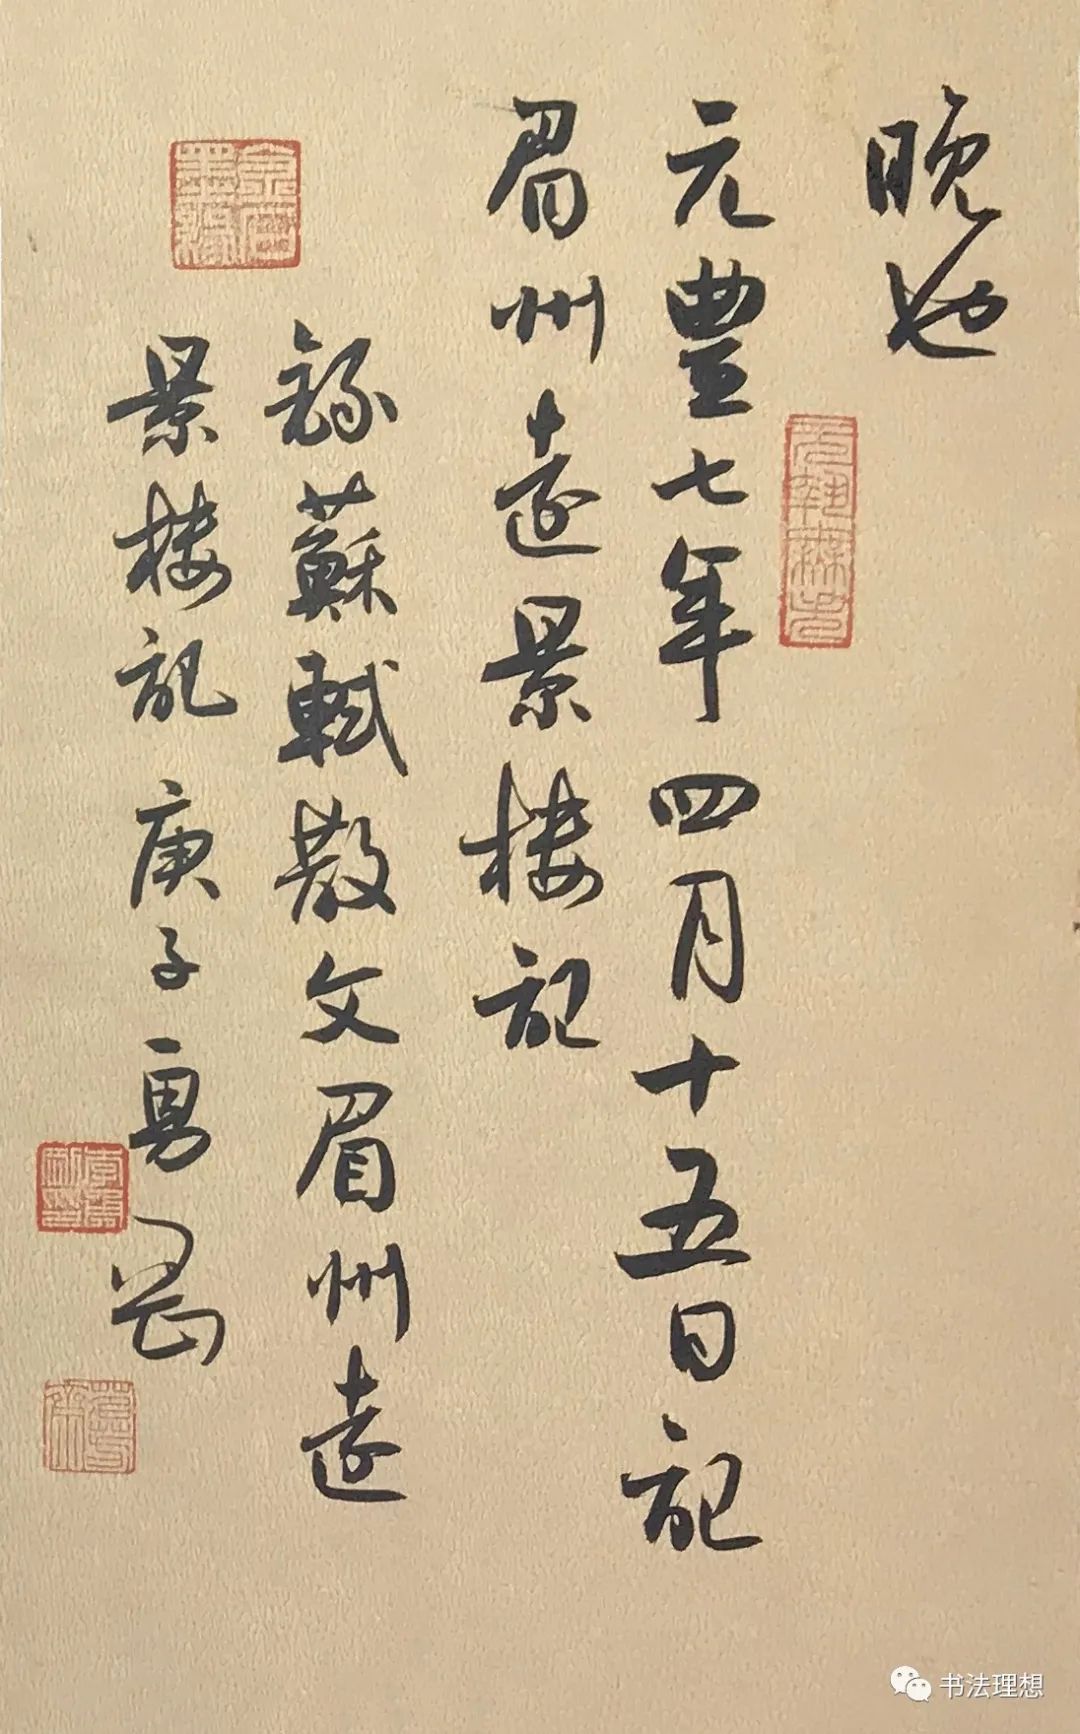 晚也
元豐七年四月十五日記
眉州遠景樓記
錄蘇軾散文眉州遠
景樓記庚子勇剛
书法理想